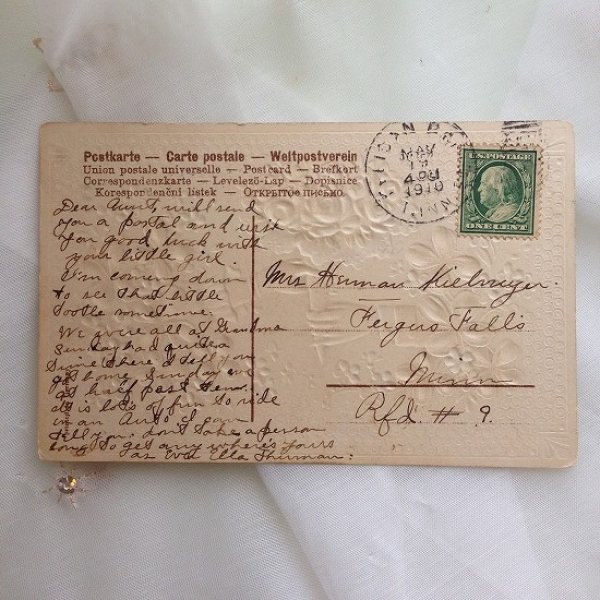 Postkarte — Carte postale — Weltpostverein
Union postale universelle — Postcard — Brefkort
Correspondenzkarte — Levelező-Lap — Dopisnice
Korespondenční listek — ОТКРЫТОЕ ПИСЬМО
Dear Aunt, will send
you a postal and wish
you good luck with
your little girl.
I'm coming down
to see that little
tootse sometime.
We were all at Grandma
Sunday had quite a
time there I tell you
got home Sunday eve
at half past ten.
it is lots of fun to ride
in an Auto I can
tell you. don't take a person
long to get any where. yours
as Ever Ella Thurman.
PELICAN RAP
MAY
1910
MINN
U.S. POSTAGE
ONE CENT
Mrs Herman
Fergus Falls
Minn
Rfd. # 9.